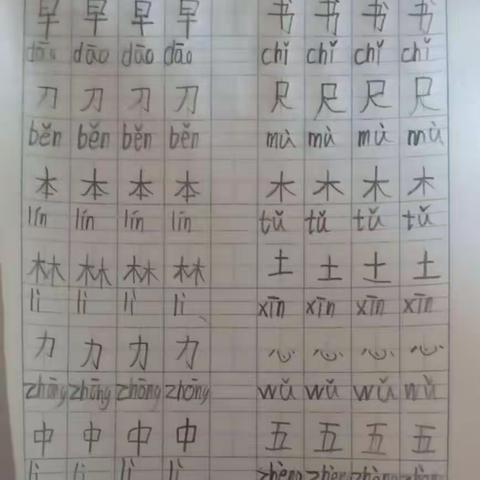 早 早 早 早 书 书 书 书
dāo dāo dāo dāo chǐ chǐ chǐ chǐ
刀 刀 刀 刀 尺 尺 尺 尺
běn běn běn běn mù mù mù mù
本 本 本 本 木 木 木 木
lín lín lín lín tǔ tǔ tǔ tǔ
林 林 林 林 土 土 土 土
lì lì lì lì xīn xīn xīn xīn
力 力 力 力 心 心 心 心
zhōng zhōng zhōng zhōng wǔ wǔ wǔ wǔ
中 中 中 中 五 五 五 五
lì lì lì lì